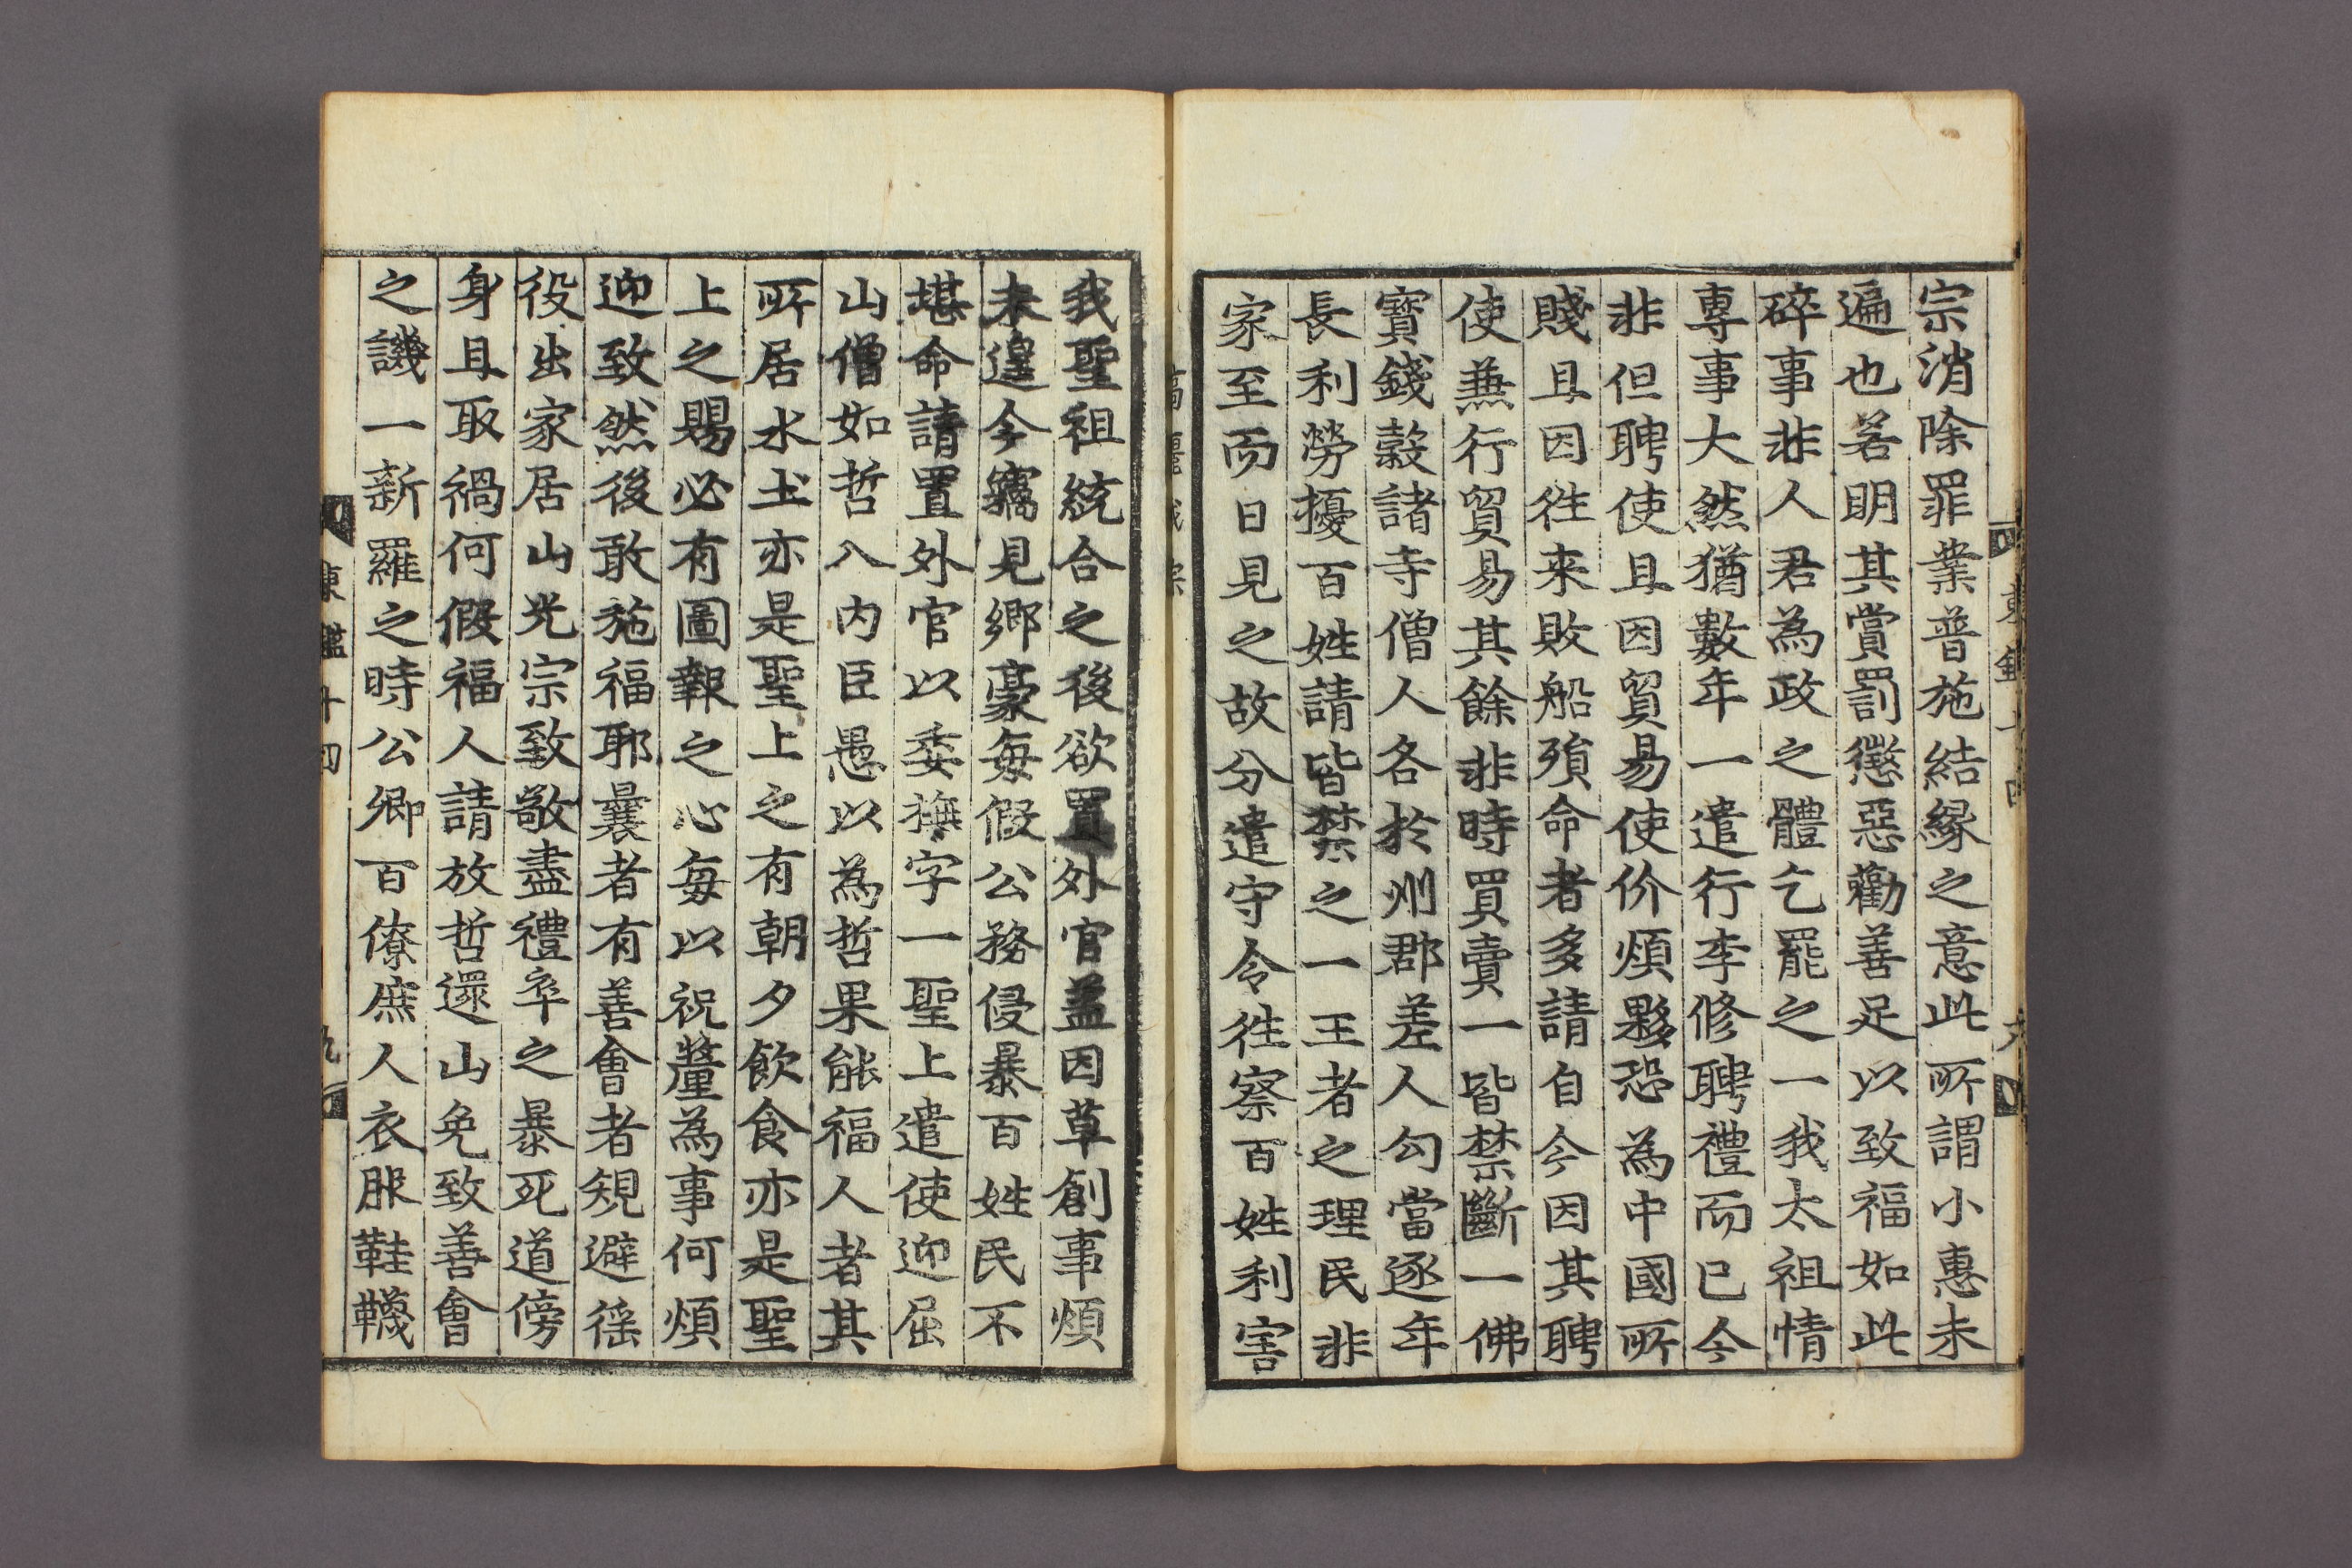 宗消除罪業普施結緣之意此所謂小惠未
遍也若明其賞罰懲惡勸善足以致福如此
碎事非人君為政之體乞罷之一我太祖情
專事大然猶數年一遣行李修聘禮而已今
非但聘使且因貿易使价煩夥恐為中國所
賤且因徃来敗船殞命者多請自今因其聘
使兼行貿易其餘非時買賣一皆禁斷一佛
寳錢穀諸寺僧人各於州郡差人勾當逐年
長利勞擾百姓請皆禁之一王者之理民非
家至而日見之故分遣守令徃察百姓利害
我聖祖統合之後欲置外官盖因草創事煩
未遑今竊見鄉豪每假公務侵暴百姓民不
堪命請置外官以委撫字一聖上遣使迎屈
山僧如哲入内臣愚以為哲果能福人者其
所居水土亦是聖上之有朝夕飲食亦是聖
上之賜必有圖報之心每以祝釐為事何煩
迎致然後敢施福耶曩者有善會者規避徭
役出家居山光宗致敬盡禮卒之暴死道傍
身且取禍何假福人請放哲還山免致善會
之譏一新羅之時公卿百僚庶人衣服鞋韈
東鑑十四
九